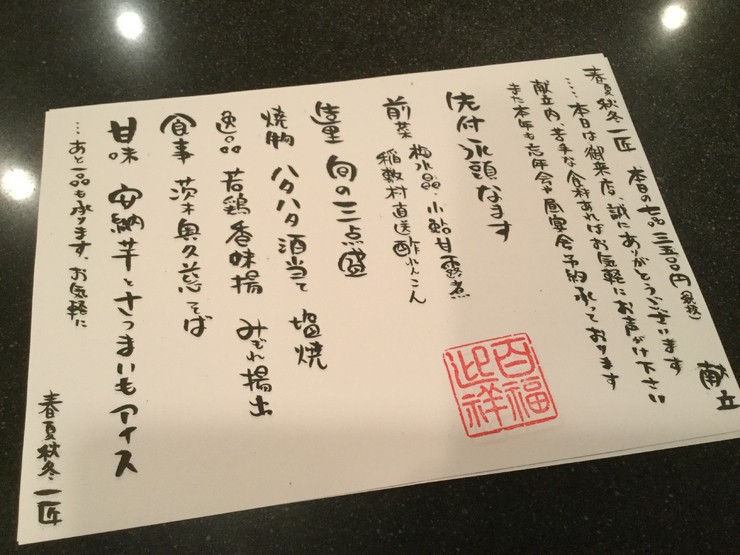 献立
春夏秋冬一匠 本日の七品 三五〇〇円(税抜)
……本日は御来店、誠にありがとうございます
献立内、苦手な食材あればお気軽にお声がけ下さい
また本年も忘年会や昼宴会予約承っております
先付 氷頭なます
前菜 梅水晶・小鮎甘露煮
稲敷村直送酢れんこん
造里 旬の三点盛
焼物 ハタハタ酒当て 塩焼
逸品 若鶏香味揚 みぞれ揚出
食事 茨木奥久慈そば
甘味 安納芋とさつまいもアイス
…あと一品も承ります、お気軽に
春夏秋冬一匠
百福
迎祥